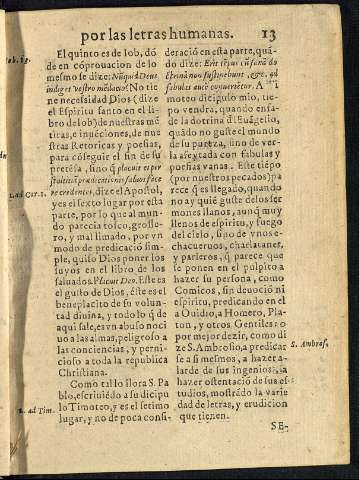 por las letras humanas. 13
El quinto es de Iob, dó
de en cóprouacion de lo
mesmo se dize: Nũquid Deus
indiget vestro mẽdacio? No tie
ne necessidad Dios (dize
el Espiritu santo en el li
bro de Iob) de nuestras mẽ
ticas, e inuẽciones, de nue
stras Retoricas y poesias,
para cõseguir el fin de su
pretẽsa, sino q̃ placuit ei per
stultitiã prædicationis saluos face
re credentes, dize el Apostol,
y es el sexto lugar por esta
parte, por lo que al mun
do parecia tosco, grosse-
ro, y mal limado, por vn
modo de predicació sim-
ple, quiso Dios poner los
suyos en el libro de los
saluados. Placuit Deo. Este es
el gusto de Dios, éste es el
beneplacito de su volun-
tad diuina, y todo lo q̃ de
aqui sale, es vn abuso noci
uo a las almas, peligroso a
las conciencias, y perni-
cioso a toda la republica
Christiana.
Como tal lo llora S. Pa
blo, escriuiẽdo a su dicipu
lo Timoteo, y es el setimo
lugar, y no de poca consi-
deració en esta parte, quã-
do dize: Erit tẽpus cũ sanã do
ctrinã non sustinebunt, &c. ad
fabulas autẽ conuertẽtur. A Ti
moteo diciguło mio, tie-
po vendrá, quando enfa-
de la dotrina dl Euãgelio,
quãdo no guste el mundo
de su pureza, sino de ver-
la afeytada con fabulas y
poesias vanas. Este tiẽpo
(por nuestros pecados) pa
rece q̃ es llegado, quando
no ay quié guste de los ser
mones llanos, aunq̃ muy
llenos de espiritu, y fuego
del cielo, sino de vnos e-
chacueruos, charlatanes,
y parleros, q̃ parece que
se ponen en el pulpito a
hazer su persona, como
Comicos, sin deuoció ni
espiritu, predicando en el
a Ouidio, a Homero, Pla-
ton, y otros Gentiles: o
por mejor dezir, como di
ze S. Ambrosio, a predicar
se a si mesmos, a hazer a-
larde de sus ingenios, a
hazer ostentació de sus es-
tudios, mostrãdo la varie
dad de letras, y erudicion
que tienen.
SE-
Iob. 13.
1. ad Cor. 1.
2. ad Tim.
S. Ambros.